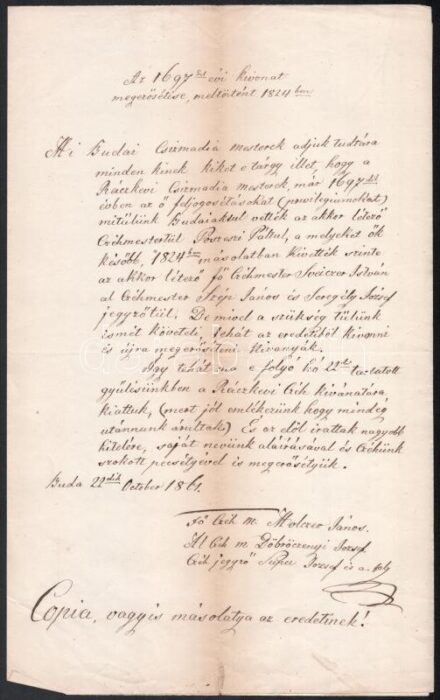 Az 1697dik évi kivonat
megerősétése, meltörtént 1824ben
Mi Budai Csizmadia mesterek adjuk tudtára
minden kinek kiket e tárgy illet, hogy a
Ráczkevi Csizmadia mesterek, már 1697dik
évben az ő feljogosétásokat (prwilegiumokat)
mitülünk Budaiaktul vették az akkor létező
Czéhmestertül Poszeszi Páltul, a melyeket ők
később, 1824ben másolatban kivették szinte
az akkor létező fő Czéhmester Sveiczer István
al Czéhmester Szép János és Seregély József
jegyzőtül. De mivel a szükség tülünk
ismét követeli, tehát az eredetiből kivonni
és újra megerősíteni kivanyák.
Igy tehát ma e folyó hó 22én tartatott
gyülésünkben a Ráczkevi Czéh kivánatára
kiattuk, (mert jól emlékezünk hogy mindég
utánnunk árultak) És az elöl irattak nagyobb
hitelére, saját nevünk aláirásával és Czéhünk
szokott pecsétyével is megerősétjük.
Buda 22dik October 1861.
Fő Czéh m. Molczer János.
Al Czéh m. Döbröczenyi Jozsef
Czéh jegyző Jozsef és a.
Copia, vagyis másolatya az eredetinek!